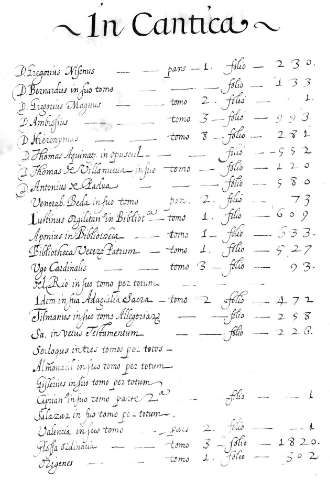 ~ In Cantica ~
D. Gregorius Nisenus — — pars — 1. folio — 230.
D. Bernardus in suo tomo — — — folio — 133
D. Gregorius Magnus — — tomo — 2. folio — 1.
D. Ambrosius — — tomo — 3 — folio — 993
D. Hieronymus — — tomo — 8 — folio — 281
D. Thomas Aquinas in opuscul — — folio — 552
D. Thomas de Villanueva in suo — tomo — folio — 120
D. Antonius de Padua — — folio — 580
Venerab. Beda in suo tomo — por — 2. folio — 73
Iustinus in Bibliot.ca tomo — 1. folio — 609
Aponius in Biblioteca — tomo — 1. folio — 633.
Bibliotheca Veter Patrum — tomo — 1. folio — 527
Ugo Cardinalis — tomo 3 — folio — 93.
del Rio in suo tomo per totum
Idem in sua Adagialia Sacra — tomo 2 folio — 472
Titelmanus in suo tomo Allegorias — folio — 258
Sa. in vetus Testamentum — — folio — 226.
in tres tomos per totos —
in suo tomo per totum —
Gislerius in suo tomo per totum
Ciprian in suo tomo parte 2.a — — folio — 1
Salazar in suo tomo per totum —
Valencia in suo tomo — pars 2. folio — 1
Glossa ordinaria — tomo — 3 — folio — 1820.
Origenes — tomo — 1. folio — 502